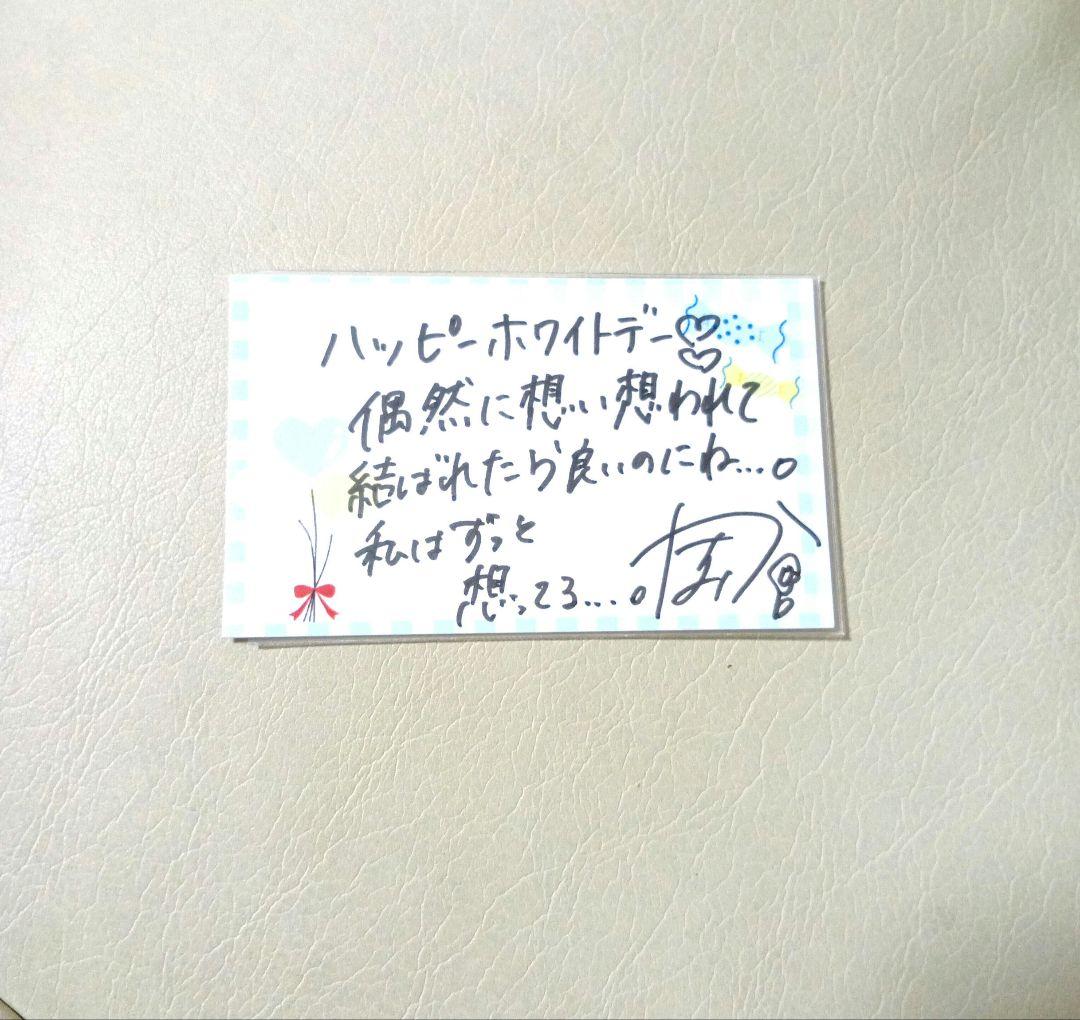 ハッピーホワイトデー♡♡
偶然に想い想われて
結ばれたら良いのにね…。
私はずっと
想ってる…。